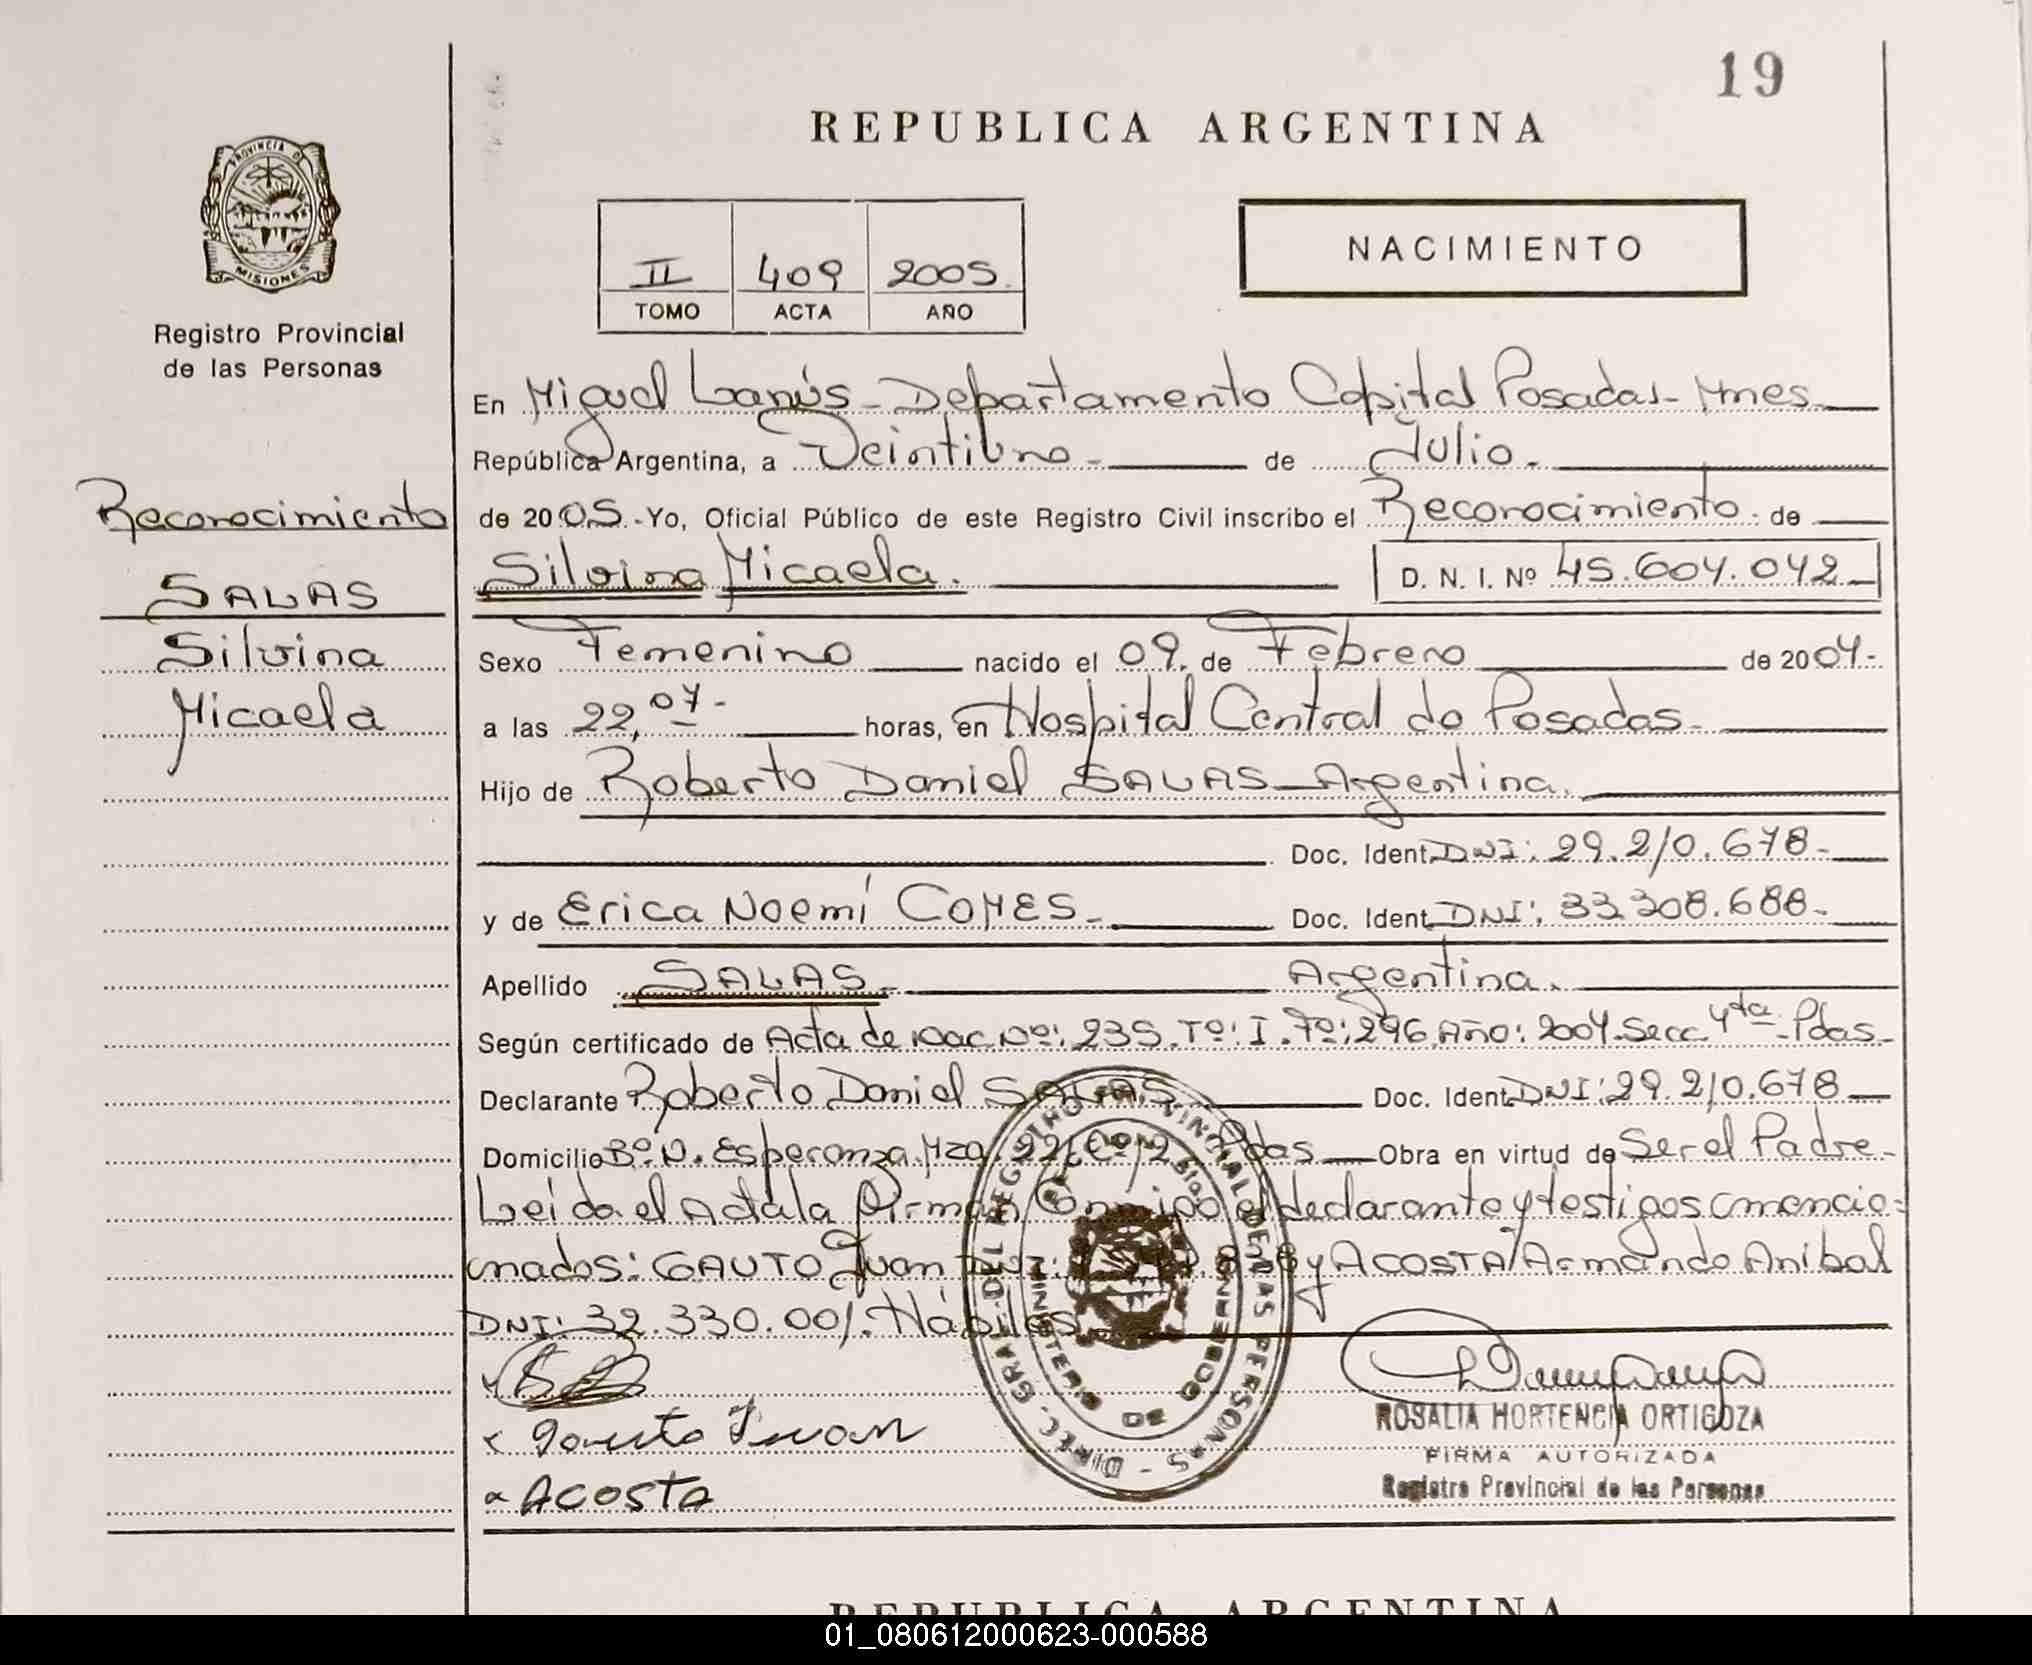 19
REPUBLICA ARGENTINA
PROVINCIA D
MISIONES
Registro Provincial
de las Personas
II 409 2005.
TOMO ACTA AÑO
NACIMIENTO
Reconocimiento
SALAS
Silvina
Micaela
En Miguel Lanús - Departamento Capital Posadas - Mnes.
República Argentina, a Veintiuno - de Julio.
de 2005.-Yo, Oficial Público de este Registro Civil inscribo el Reconocimiento. de
Silvina Micaela. D. N. I. Nº 45.604.042
Sexo Femenino nacido el 09. de Febrero de 2004.-
a las 22,07- horas, en Hospital Central de Posadas-
Hijo de Roberto Daniel SALAS - Argentina.
Doc. Ident. DNI: 29.210.678-
y de Erica Noemí COMES.- Doc. Ident. DNI: 33.308.688-
Apellido SALAS.- Argentina.
Según certificado de Acta de nac. Nº: 235. Tº: I. Fº: 296. Año: 2004. Secc. 4ta - Pdas.-
Declarante Roberto Daniel SALAS Doc. Ident. DNI: 29.210.678
Domicilio Bº N. Esperanza Mza. 22 Cº 12 Pdas Obra en virtud de Ser el Padre-
Leída el Acta la Firman Conmigo el declarante y testigos mencio=
nados: GAUTO Juan DNI: y ACOSTA Armando Anibal
DNI: 32.330.001. Hábiles
Gauto Juan
ACOSTA
DIREC. GRAL. DEL REGISTRO PROVINCIAL DE LAS PERSONAS
MINISTERIO DE GOBIERNO
ROSALIA HORTENCIA ORTIGOZA
FIRMA AUTORIZADA
Registro Provincial de las Personas
REPUBLICA ARGENTINA
01_080612000623-000588